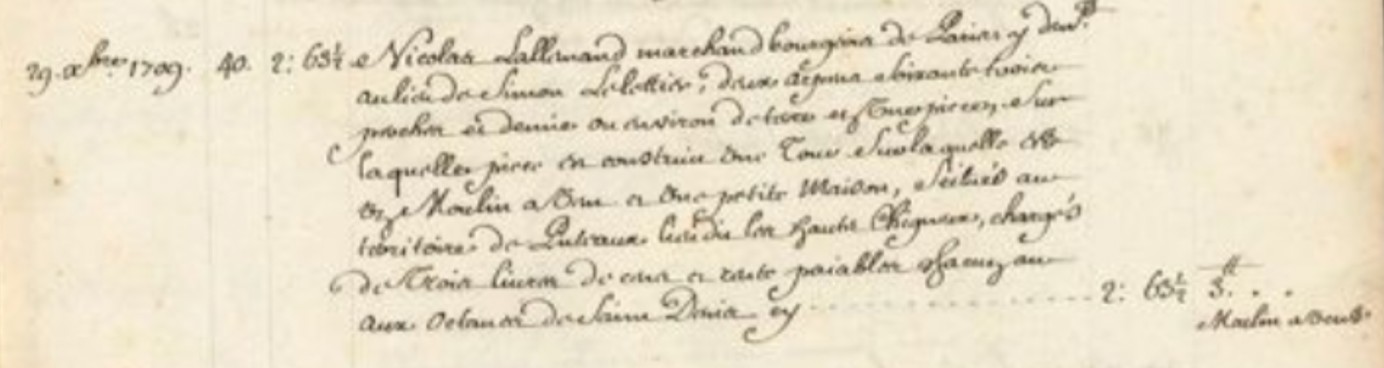 29. xbre 1709. 40. 2: 63½ Nicolas Lallemand marchand bourgeois de Paris y demt.
au lieu de Simon Lelettier, deux arpens soixante trois
perches et demie ou environ de terre en une piece, sur
laquelle piece est construit une Tour sur laquelle est
un Moulin a Vent et une petite Maison, scitués au
territoire de Puteaux lieudit les hauts Chigneux, chargés
de Trois livres de cens et rente paiables chacun an
aux Octaves de Saint Denis cy - - - - - 2: 63½ 3.# . .
Moulin a Vent